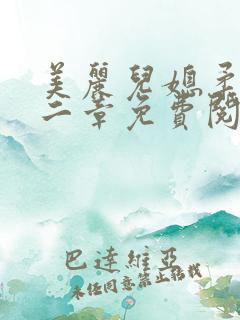 美麗兒媳
二章免費閱
巴達維亞
未經同意禁止轉載